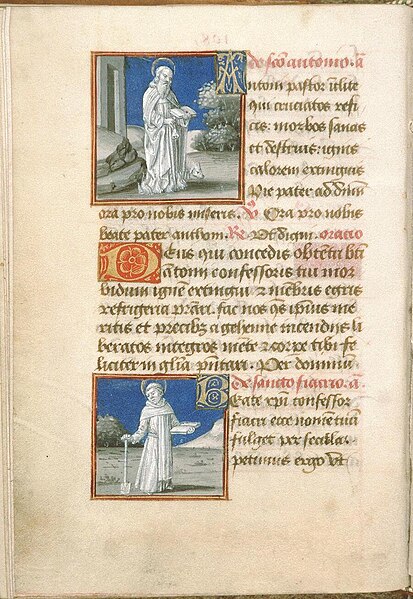 De sc̄o antonio. ā
Antoni pastor inlite
qui cruciatos refi
cis: morbos sanas
et destruis: ignis
calorem extinguis
Pie pater ad dn̄m
ora pro nobis miseris. V̄ Ora pro nobis
beate pater anthoni. R̄ Vt digni. oratio
Deus qui concedis obtentu bti
ātonii confessoris tui mor
bidum ignē extingui z mēbris egris
refrigeria p̄stari. fac nos q̄s ipsius me
ritis et precibz a gehenne incendiis li
beratos integros mēte z corpe tibi fe
liciter in glīa p̄ntari. Per dominū
De sancto fiacrio. ā
Beate xp̄i confessor
fiacri ecce nomē tuū
fulget per secula.
petimus ergo vt